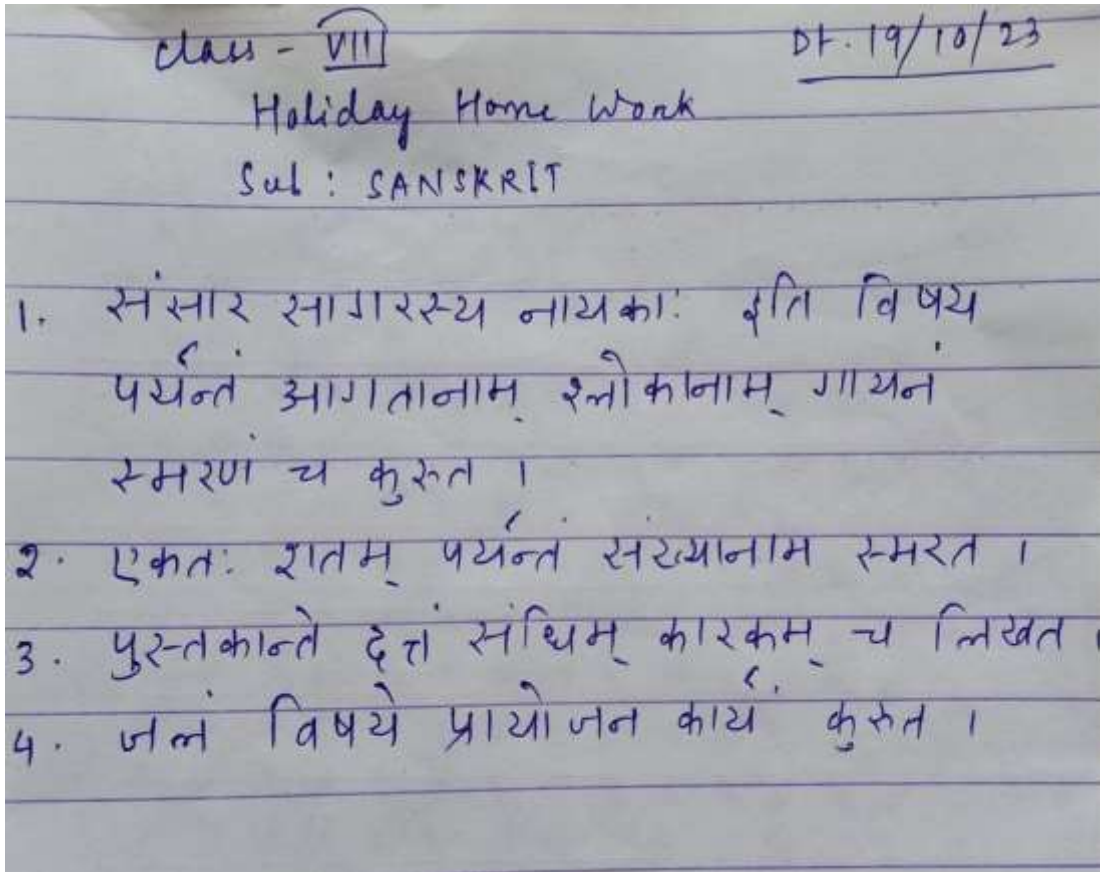 class - VIII
Dt. 19/10/23
Holiday Home Work
Sub : SANSKRIT
1. संसार सागरस्य नायकाः इति विषय
पर्यन्तं आगतानाम् श्लोकानाम् गायनं
स्मरणं च कुरुत ।
२. एकतः शतम् पर्यन्तं संख्यानाम स्मरत ।
3. पुस्तकान्ते दत्तं संधिम् कारकम् च लिखत ।
4. जलं विषये प्रायोजन कार्यं कुरुत ।